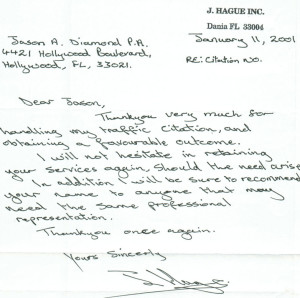 J. HAGUE INC.
Dania FL 33004
January 11, 2001
Jason A. Diamond P.A.
4421 Hollywood Boulevard,
Hollywood, FL, 33021.
RE: Citation NO.
Dear Jason,
Thankyou very much for
handling my traffic Citation, and
obtaining a favourable outcome.
I will not hesitate in retaining
your services again, should the need arise
In addition I will be sure to recommend
your name to anyone that may
need the same professional
representation.
Thankyou once again.
Yours Sincerely